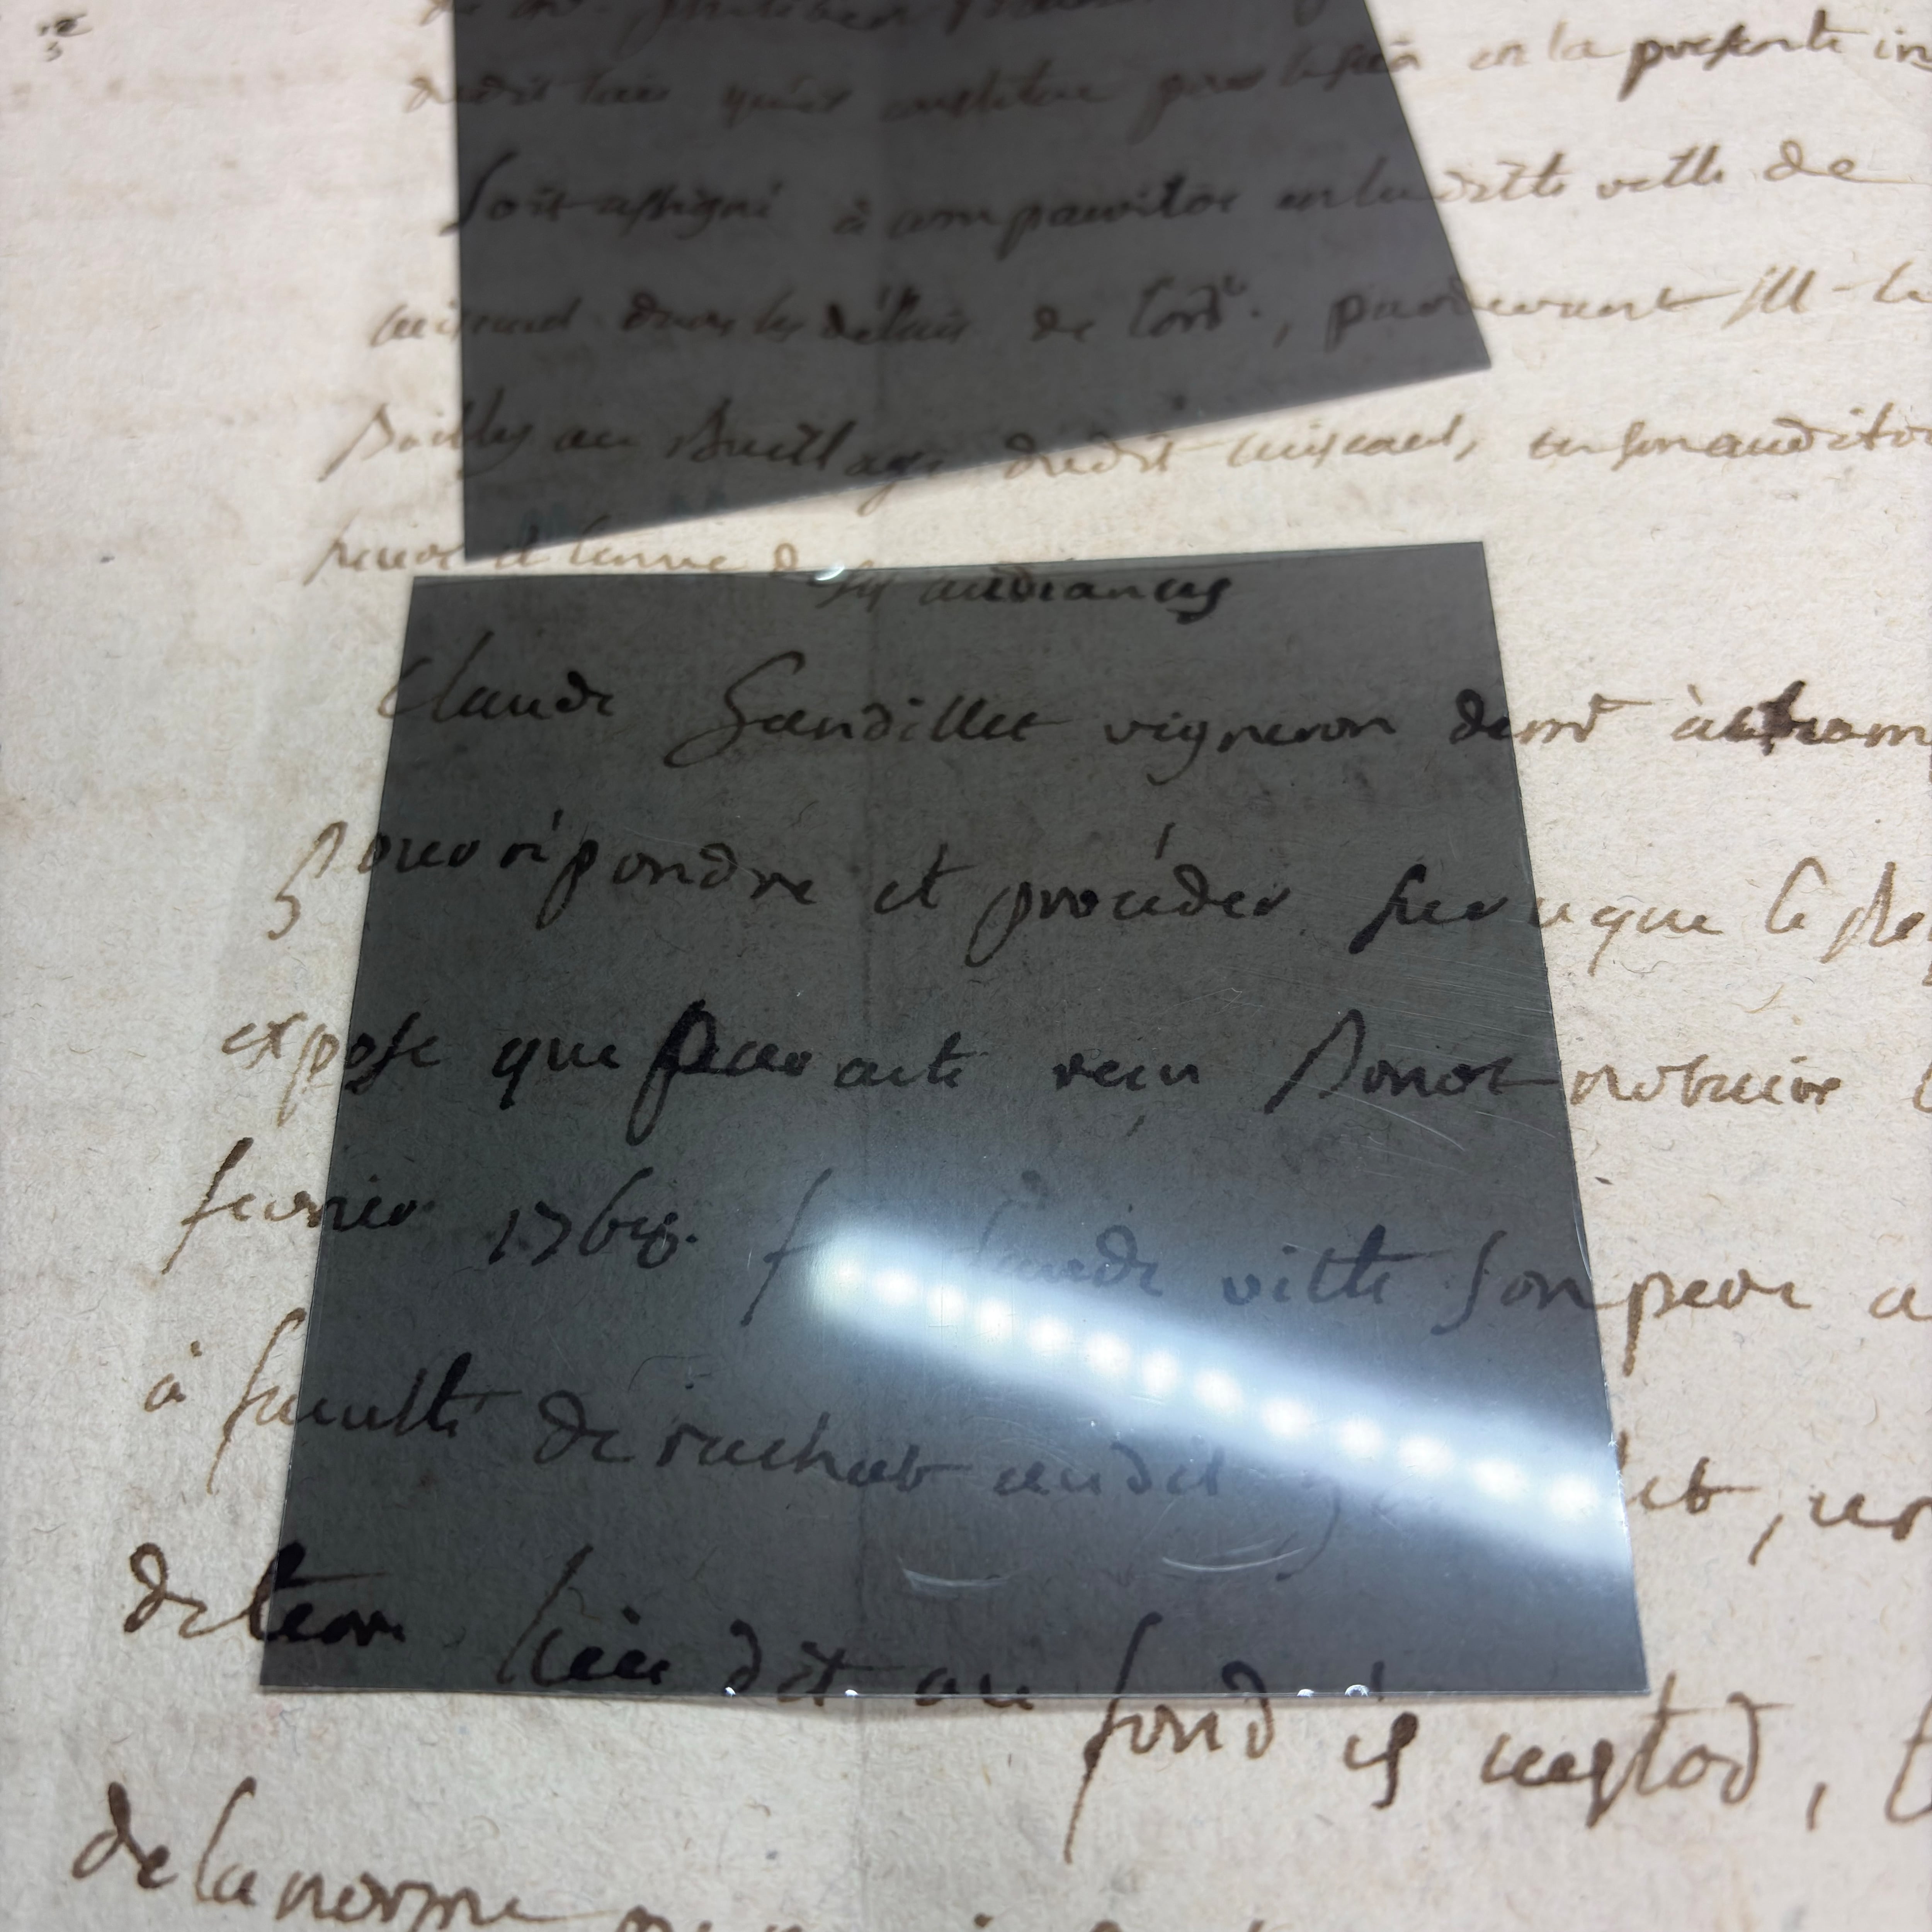 dudit lieu qu'il constitue pour le fait en la presente in
Soit assigné à comparoitre en laditte ville de
cuiseaul dans les délais de l'ord.e, pardevant M le
Bailly au Bailliage dudit cuiseaul, en son auditoi
heure et tenue de ses audiances
Claude Gandillet vigneron demt à
pour répondre et procéder sur ce que le
expose que par acte recu Bonot notaire
fevrier 1768. Claude vitte son pere a
à faculté de rachat audit
de terre lieu dit au fond
de la norme